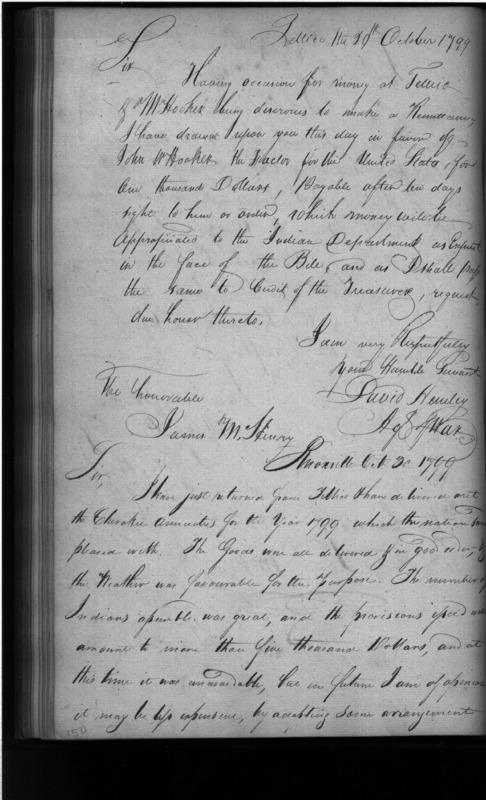 Tellico the 20th October 1799
Sir
Having occasion for money at Tellico
& Mr Hooker being desirous to make a Remittance,
I have drawn upon you this day in favor of
John W Hooker the Factor for the United States, for
One thousand Dollars, Payable after ten days
sight to him or order, which money will be
appropriated to the Indian Department as Expressed
in the face of the Bill, and as I shall pass
the same to Credit of the Treasurer, request
due honor thereto.
I am very Respectfully
your Humble Servant
David Henley
A of War
The honorable
James McHenry
Knoxville Oct 30 1799
Sir,
I have just returned from Tellico & have delivered out
the Cherokee annuities for the Year 1799 which the nation
pleased with. The Goods were all delivered in good order,
the Weather was favourable for the Purpose. The number of
Indians assemble was great, and the provisions issued will
amount to more than five thousand Dollars, and at
this time it was unavoidable, but in future I am of opinion
it may be less expensive, by adopting some arrangement
150